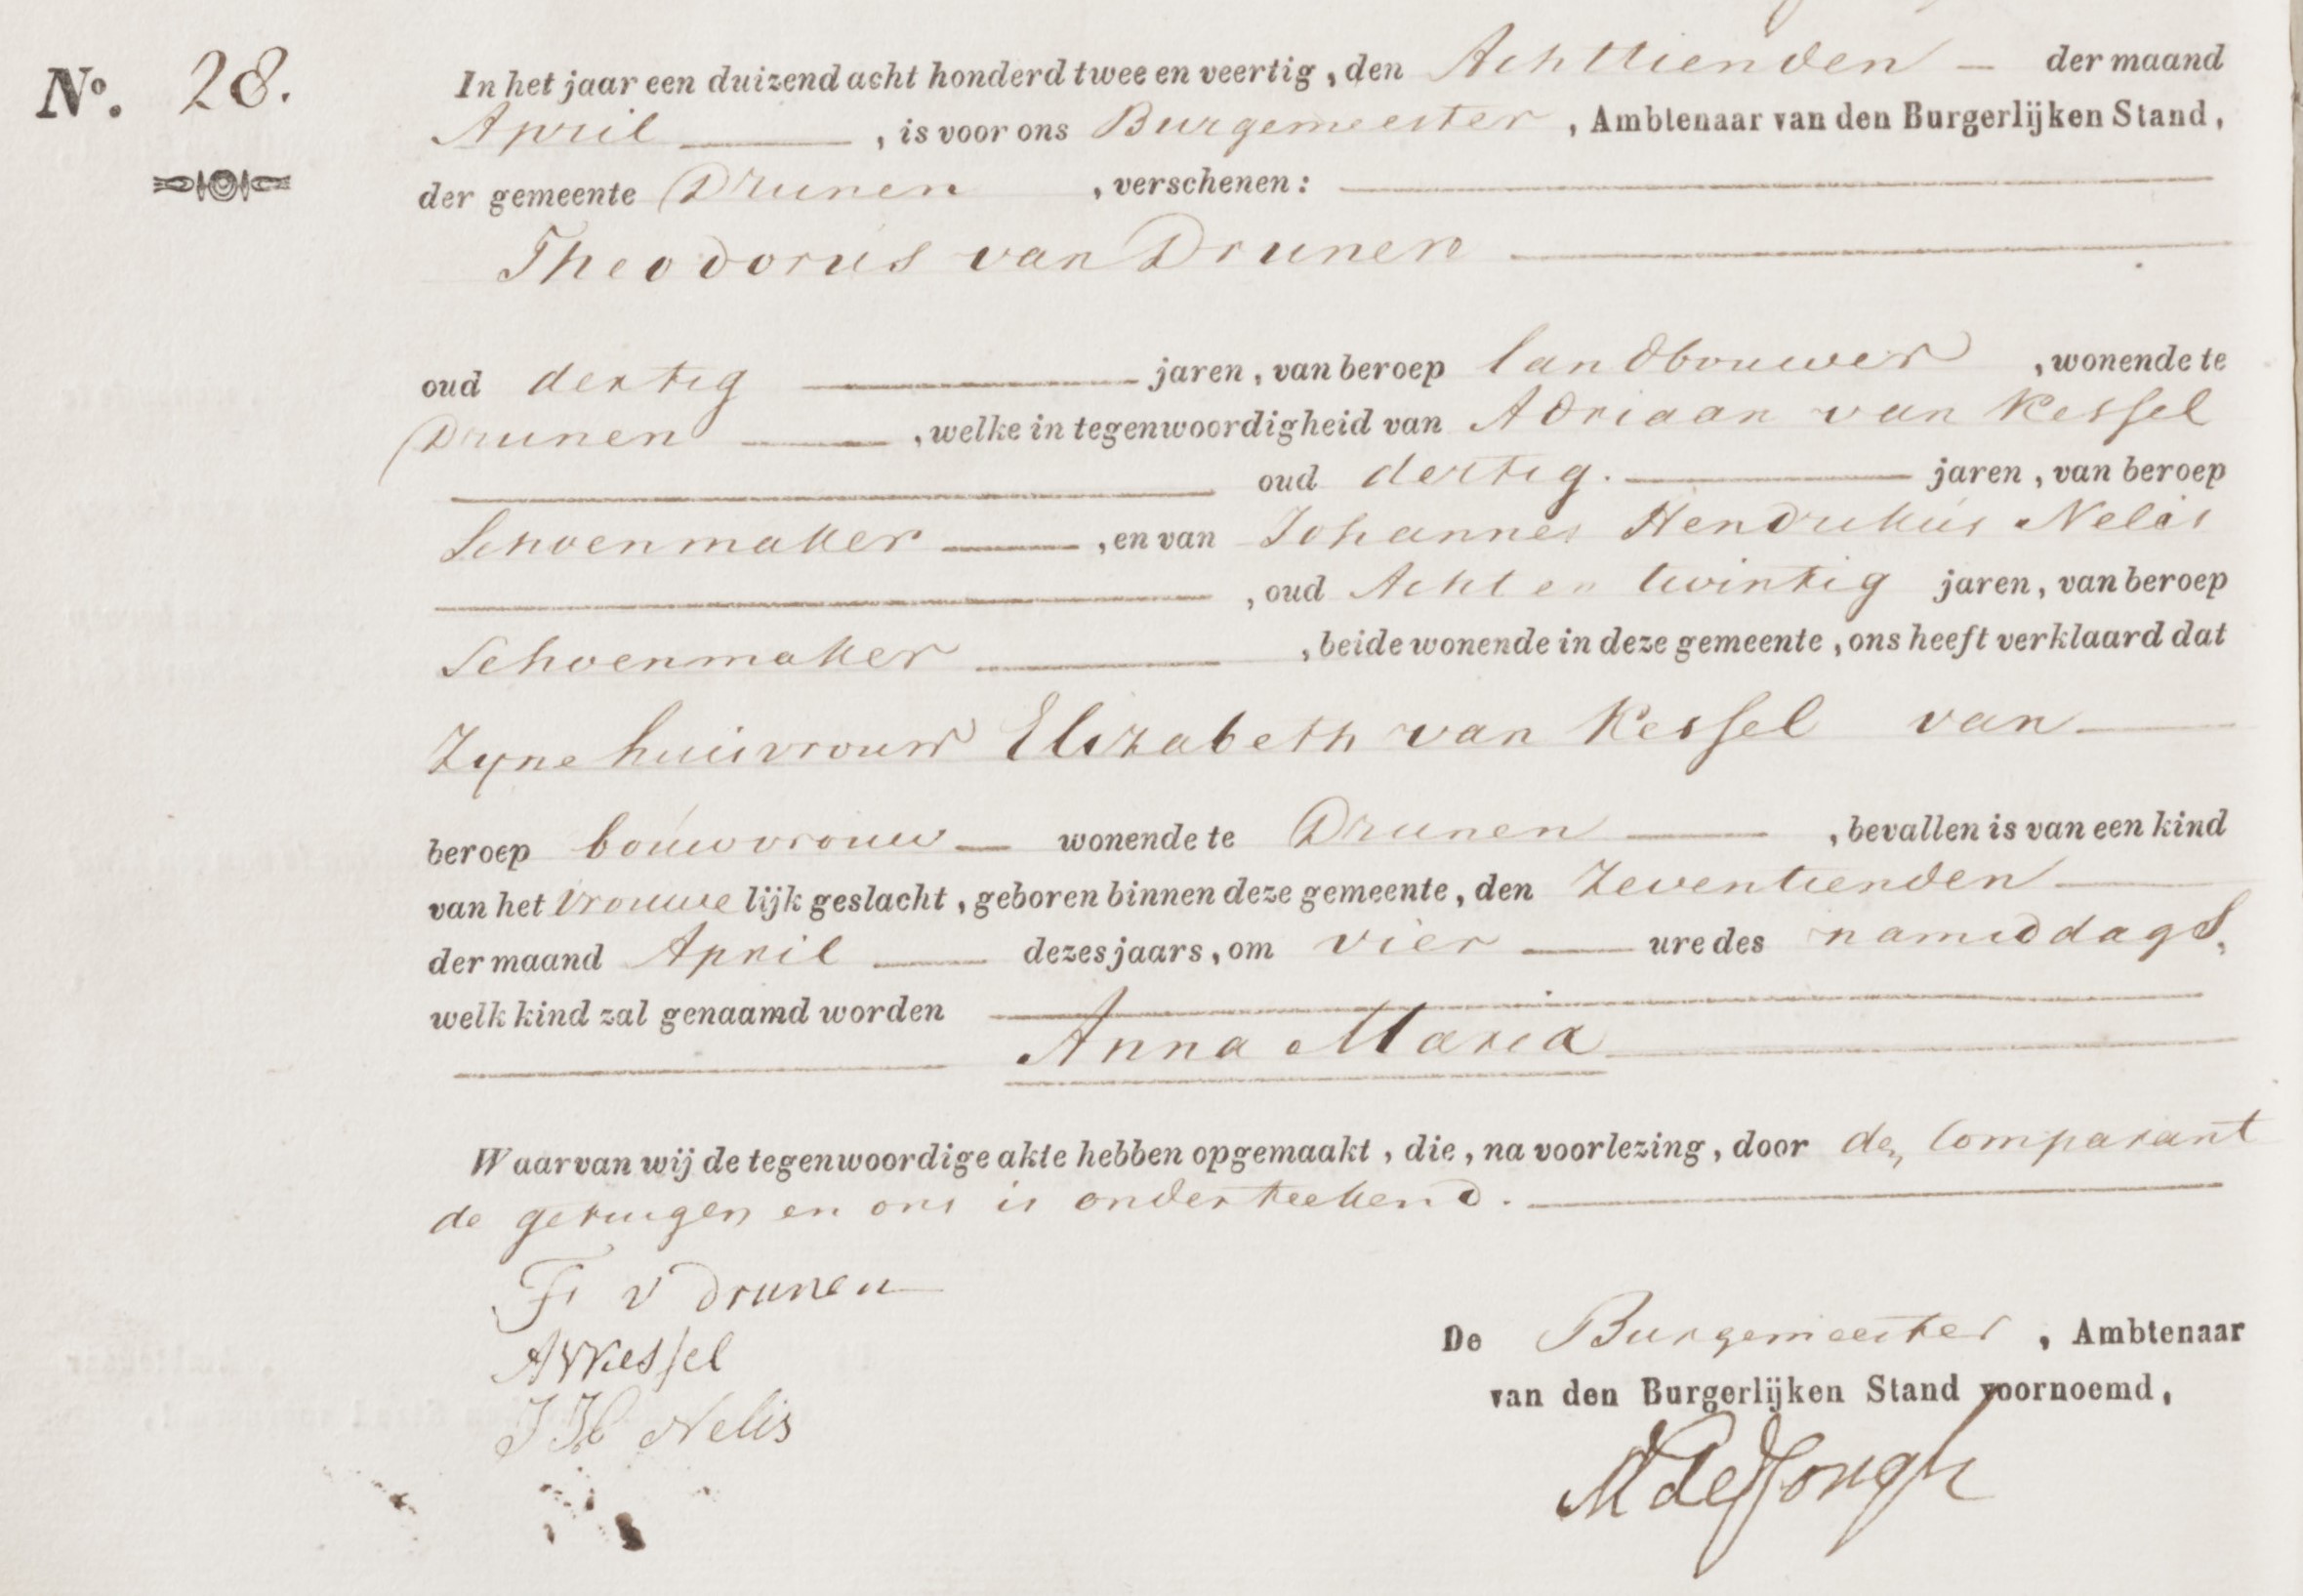 No. 28.
In het jaar een duizend acht honderd twee en veertig, den Achttienden der maand
April, is voor ons Burgemeester, Ambtenaar van den Burgerlijken Stand,
der gemeente Drunen, verschenen:
Theodorus van Drunen
oud dertig jaren, van beroep landbouwer, wonende te
Drunen, welke in tegenwoordigheid van Adriaan van Kessel
oud dertig. jaren, van beroep
Schoenmaker, en van Johannes Hendrikus Nelis
, oud Acht en twintig jaren, van beroep
Schoenmaker, beide wonende in deze gemeente, ons heeft verklaard dat
Zyne huisvrouw Elizabeth van Kessel van
beroep bouwvrouw wonende te Drunen, bevallen is van een kind
van het vrouwelijk geslacht, geboren binnen deze gemeente, den Zeventienden
der maand April dezes jaars, om vier ure des namiddags,
welk kind zal genaamd worden
Anna Maria
Waarvan wij de tegenwoordige akte hebben opgemaakt, die, na voorlezing, door den Comparant
de getuigen en ons is onderteekend.
F v Drunen
AvKessel
J H Nelis
De Burgemeester, Ambtenaar
van den Burgerlijken Stand voornoemd,
M de Jongh